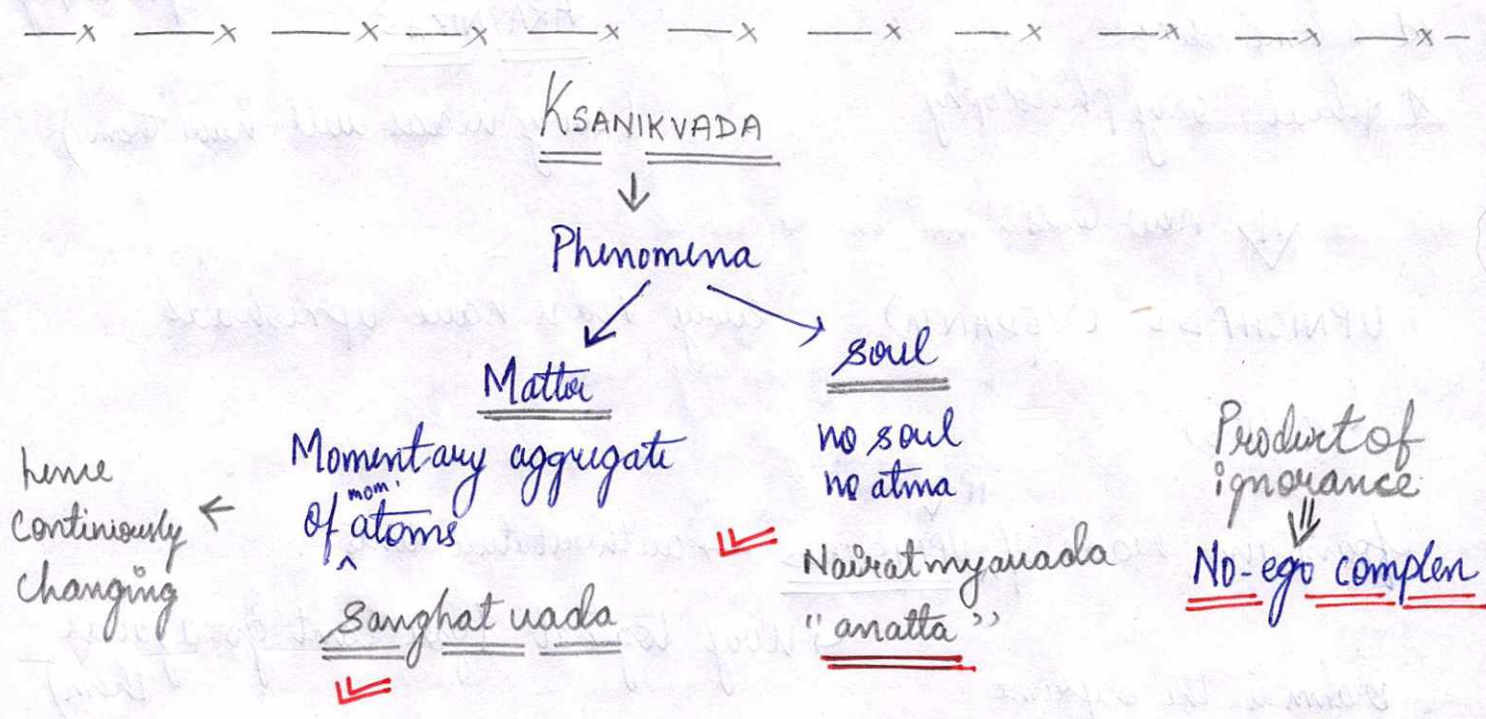 KSANIKVADA
Phenomena
Matter
Momentary aggregate
of mom. atoms
Sanghat vada
hence
continiously
changing
soul
no soul
no atma
Nairatmyavada
"anatta"
Product of
ignorance
No-ego complex